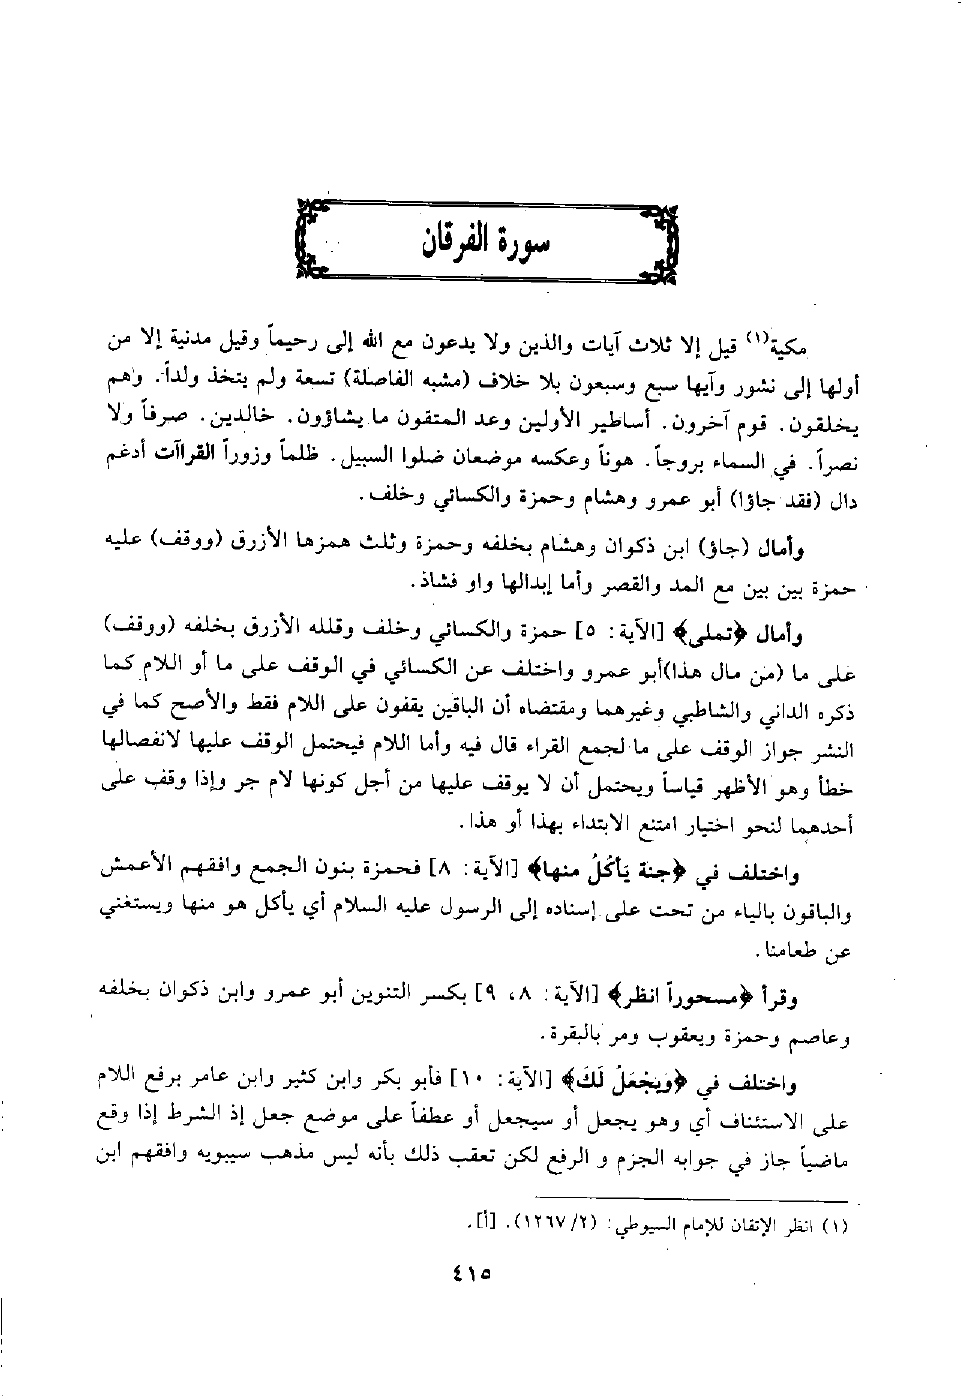 سورة الفرقان
مكية(١) قيل إلا ثلاث آيات والذين ولا يدعون مع الله إلى رحيماً وقيل مدنية إلا من
أولها إلى نشور وآيها سبع وسبعون بلا خلاف (مشبه الفاصلة) تسعة ولم يتخذ ولداً. وهم
يخلقون. قوم آخرون. أساطير الأولين وعد المتقون ما يشاؤون. خالدين. صرفاً ولا
نصراً. في السماء بروجاً. هوناً وعكسه موضعان ضلوا السبيل. ظلماً وزوراً القراآت أدغم
دال (فقد جاؤا) أبو عمرو وهشام وحمزة والكسائي وخلف.
وأمال (جاؤ) ابن ذكوان وهشام بخلفه وحمزة وثلث همزها الأزرق (ووقف) عليه
حمزة بين بين مع المد والقصر وأما إبدالها واو فشاذ.
وأمال ﴿تملى﴾ [الآية: ٥] حمزة والكسائي وخلف وقلله الأزرق بخلفه (ووقف)
على ما (من مال هذا)أبو عمرو واختلف عن الكسائي في الوقف على ما أو اللام كما
ذكره الداني والشاطبي وغيرهما ومقتضاه أن الباقين يقفون على اللام فقط والأصح كما في
النشر جواز الوقف على ما لجمع القراء قال فيه وأما اللام فيحتمل الوقف عليها لانفصالها
خطأ وهو الأظهر قياساً ويحتمل أن لا يوقف عليها من أجل كونها لام جر وإذا وقف على
أحدهما لنحو اختيار امتنع الابتداء بهذا أو هذا.
واختلف في ﴿جنة يَأكُلُ منها﴾ [الآية: ٨] فحمزة بنون الجمع وافقهم الأعمش
والباقون بالياء من تحت على إسناده إلى الرسول عليه السلام أي يأكل هو منها ويستغني
عن طعامنا.
وقرأ ﴿مسحوراً انظر﴾ [الآية: ٨، ٩] بكسر التنوين أبو عمرو وابن ذكوان بخلفه
وعاصم وحمزة ويعقوب ومر بالبقرة.
واختلف في ﴿وَيَجْعَلُ لَكَ﴾ [الآية: ١٠] فأبو بكر وابن كثير وابن عامر برفع اللام
على الاستئناف أي وهو يجعل أو سيجعل أو عطفاً على موضع جعل إذ الشرط إذا وقع
ماضياً جاز في جوابه الجزم و الرفع لكن تعقب ذلك بأنه ليس مذهب سيبويه وافقهم ابن
(١) انظر الإتقان للإمام السيوطي: (١٢٦٧/٢). [أ].
٤١٥